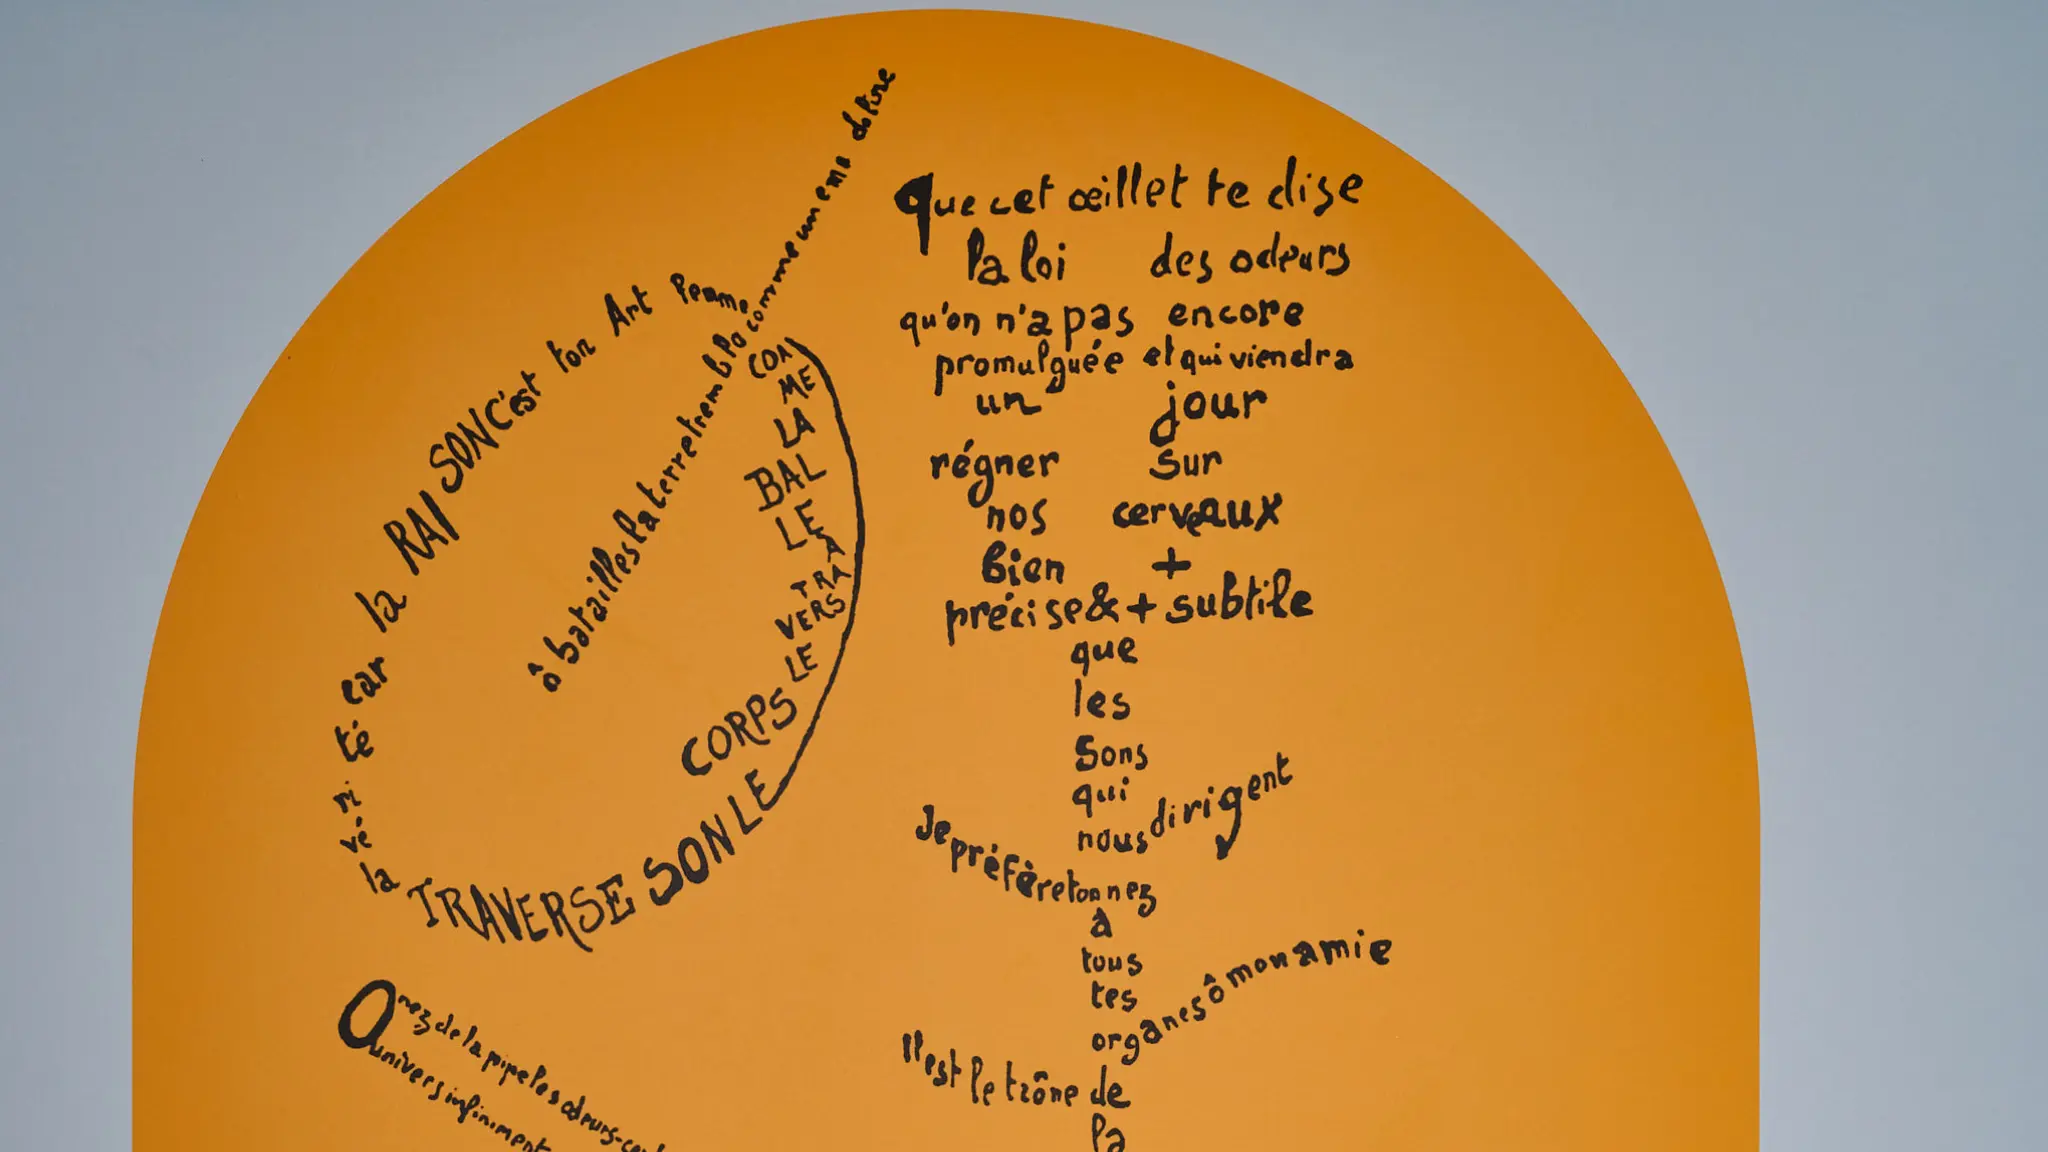 ô batailles la terre tremble comme une mandoline
COM
ME
LA
BAL
LE
À
TRA
VERS
LE
CORPS
LE SON TRAVERSE
la vérité car la RAISON c'est ton Art femme
Que cet œillet te dise
la loi des odeurs
qu'on n'a pas encore
promulguée et qui viendra
un jour
régner sur
nos cerveaux
bien +
précise & + subtile
que
les
sons
qui
nous dirigent
Je préfère ton nez
à
tous
tes
organes ô mon amie
Il est le trône de
la
O nez de la pipe les odeurs-cen
univers infiniment